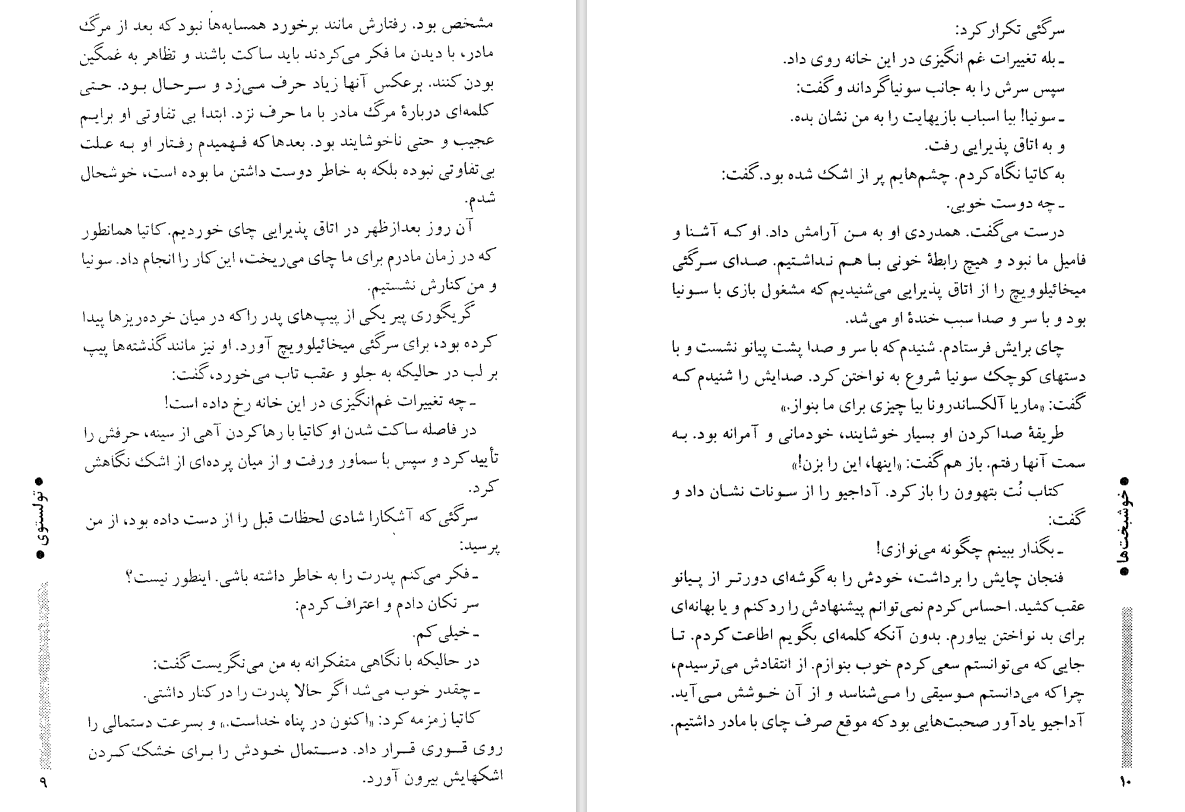 مشخص بود. رفتارش مانند برخورد همسایه‌ها نبود که بعد از مرگ
مادر، با دیدن ما فکر می‌کردند باید ساکت باشند و تظاهر به غمگین
بودن کنند. برعکس آنها زیاد حرف می‌زد و سرحال بود. حتی
کلمه‌ای دربارهٔ مرگ مادر با ما حرف نزد. ابتدا بی تفاوتی او برایم
عجیب و حتی ناخوشایند بود. بعدها که فهمیدم رفتار او به علت
بی‌تفاوتی نبوده بلکه به خاطر دوست داشتن ما بوده است، خوشحال
شدم.
آن روز بعدازظهر در اتاق پذیرایی چای خوردیم. کاتیا همانطور
که در زمان مادرم برای ما چای می‌ریخت، این کار را انجام داد. سونیا
و من کنارش نشستیم.
گریگوری پیر یکی از پیپ‌های پدر را که در میان خرده‌ریزها پیدا
کرده بود، برای سرگئی میخائیلوویچ آورد. او نیز مانند گذشته‌ها پیپ
بر لب در حالیکه به جلو و عقب تاب می‌خورد، گفت:
ـ چه تغییرات غم‌انگیزی در این خانه رخ داده است!
در فاصله ساکت شدن او کاتیا با رها کردن آهی از سینه، حرفش را
تأیید کرد و سپس با سماور ورفت و از میان پرده‌ای از اشک نگاهش
کرد.
سرگئی که آشکارا شادی لحظات قبل را از دست داده بود، از من
پرسید:
ـ فکر می‌کنم پدرت را به خاطر داشته باشی. اینطور نیست؟
سر تکان دادم و اعتراف کردم:
ـ خیلی کم.
در حالیکه با نگاهی متفکرانه به من می‌نگریست گفت:
ـ چقدر خوب می‌شد اگر حالا پدرت را در کنار داشتی.
کاتیا زمزمه کرد: «اکنون در پناه خداست.» و بسرعت دستمالی را
روی قوری قرار داد. دستمال خودش را برای خشک کردن
اشکهایش بیرون آورد.
● تولستوی ●
۹
سرگئی تکرار کرد:
ـ بله تغییرات غم انگیزی در این خانه روی داد.
سپس سرش را به جانب سونیا گرداند و گفت:
ـ سونیا! بیا اسباب بازیهایت را به من نشان بده.
و به اتاق پذیرایی رفت.
به کاتیا نگاه کردم. چشم‌هایم پر از اشک شده بود. گفت:
ـ چه دوست خوبی.
درست می‌گفت. همدردی او به من آرامش داد. او که آشنا و
فامیل ما نبود و هیچ رابطهٔ خونی با هم نداشتیم. صدای سرگئی
میخائیلوویچ را از اتاق پذیرایی می‌شنیدیم که مشغول بازی با سونیا
بود و با سر و صدا سبب خندهٔ او می‌شد.
چای برایش فرستادم. شنیدم که با سر و صدا پشت پیانو نشست و با
دستهای کوچک سونیا شروع به نواختن کرد. صدایش را شنیدم که
گفت: «ماریا آلکساندرونا بیا چیزی برای ما بنواز.»
طریقهٔ صدا کردن او بسیار خوشایند، خودمانی و آمرانه بود. به
سمت آنها رفتم. باز هم گفت: «اینها، این را بزن!»
کتاب نُت بتهوون را باز کرد. آداجیو را از سونات نشان داد و
گفت:
ـ بگذار ببینم چگونه می‌نوازی!
فنجان چایش را برداشت، خودش را به گوشه‌ای دورتر از پیانو
عقب کشید. احساس کردم نمی‌توانم پیشنهادش را رد کنم و یا بهانه‌ای
برای بد نواختن بیاورم. بدون آنکه کلمه‌ای بگویم اطاعت کردم. تا
جایی که می‌توانستم سعی کردم خوب بنوازم. از انتقادش می‌ترسیدم،
چرا که می‌دانستم موسیقی را می‌شناسد و از آن خوشش می‌آید.
آداجیو یادآور صحبت‌هایی بود که موقع صرف چای با مادر داشتیم.
● خوشبخت‌ها ●
۱۰